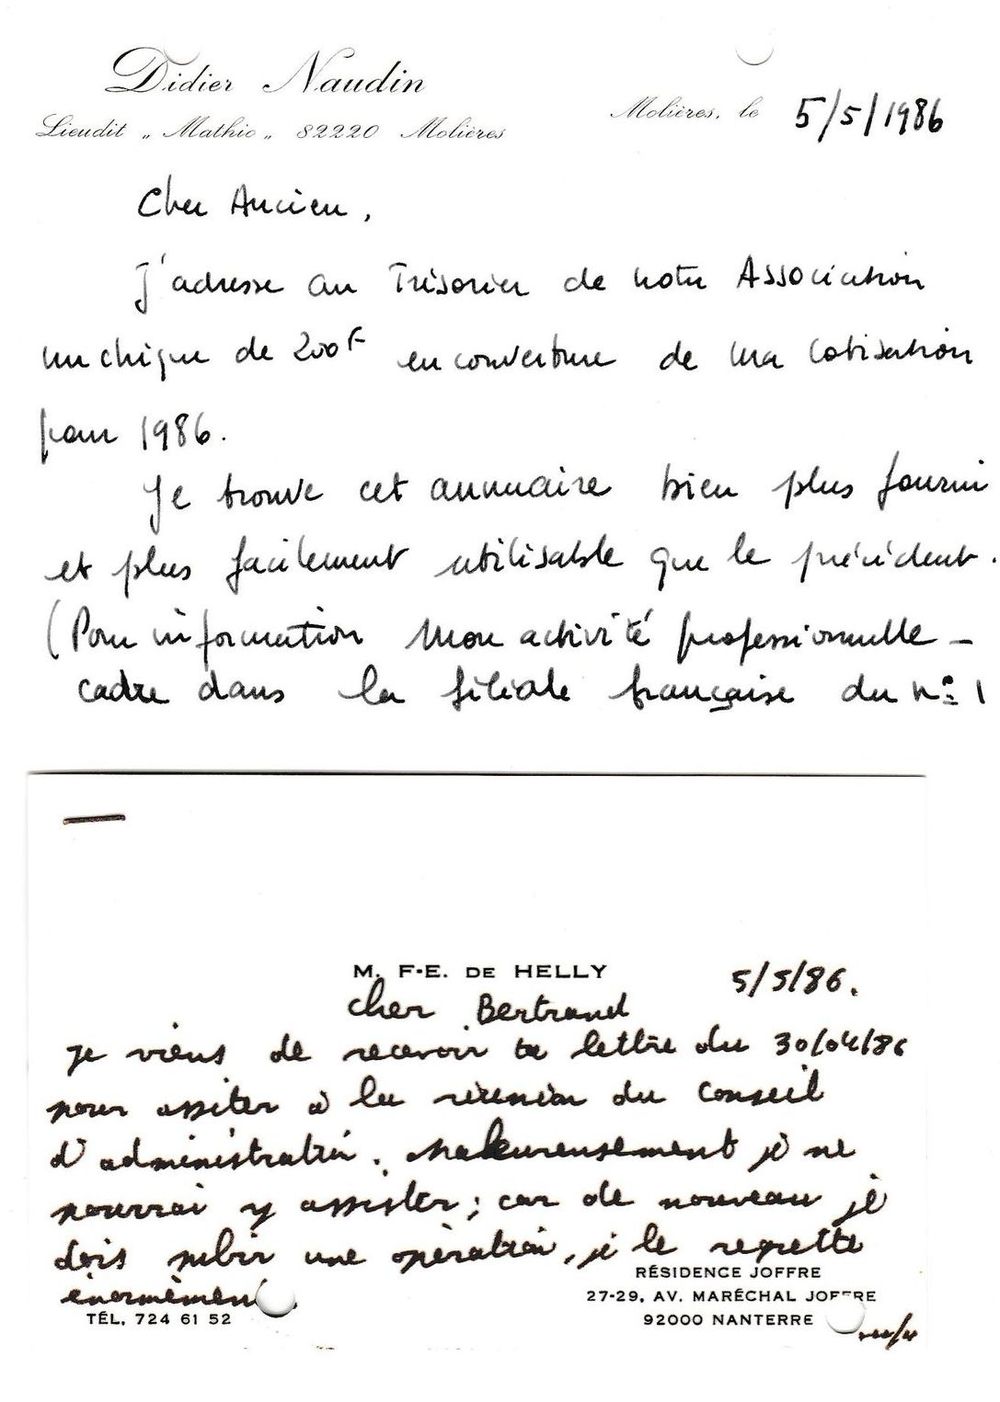 Didier Naudin
Lieudit „ Mathio „ 82220 Molières
Molières, le 5/5/1986
Cher Ancien,
J'adresse au Trésorier de notre Association
un chèque de 200F en couverture de ma Cotisation
pour 1986.
Je trouve cet annuaire bien plus fourni
et plus facilement utilisable que le précédent.
(Pour information Mon activité professionnelle -
cadre dans la filiale française du n° 1
M. F-E. DE HELLY
5/5/86.
cher Bertrand
je viens de recevoir ta lettre du 30/04/86
pour assister à la réunion du Conseil
d'administration. Malheureusement je ne
pourrai y assister; car de nouveau je
dois subir une opération, je le regrette
énormément.
RÉSIDENCE JOFFRE
27-29, AV. MARÉCHAL JOFFRE
TÉL. 724 61 52
92000 NANTERRE